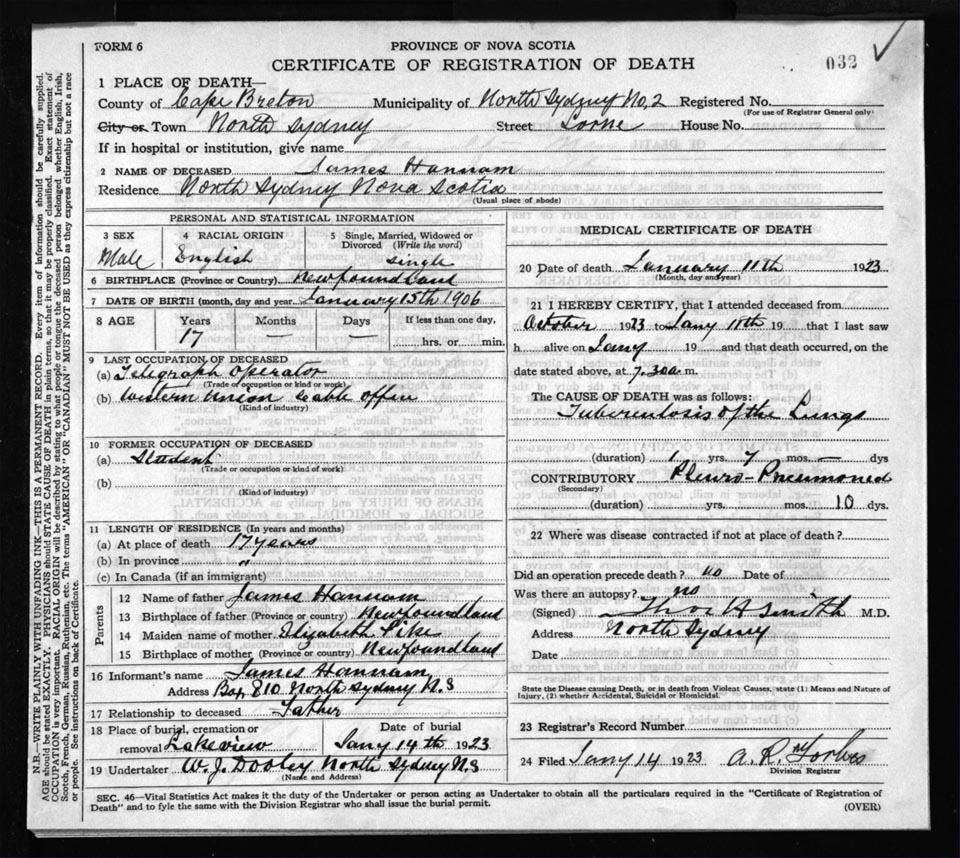 FORM 6
PROVINCE OF NOVA SCOTIA
CERTIFICATE OF REGISTRATION OF DEATH
032
1 PLACE OF DEATH—
County of Cape Breton Municipality of North Sydney No, 2 Registered No.
(For use of Registrar General only)
City or Town North Sydney Street Lorne House No.
If in hospital or institution, give name
2 NAME OF DECEASED James Hannam
Residence North Sydney Nova Scotia
(Usual place of abode)
PERSONAL AND STATISTICAL INFORMATION
3 SEX 4 RACIAL ORIGIN 5 Single, Married, Widowed or Divorced (Write the word)
Male English Single
6 BIRTHPLACE (Province or Country) Newfoundland
7 DATE OF BIRTH (month, day and year) January 15th 1906
8 AGE Years Months Days If less than one day,
17 — — hrs. or min.
9 LAST OCCUPATION OF DECEASED
(a) Telegraph Operator
(Trade or occupation or kind or work)
(b) Western Union Cable Office
(Kind of industry)
10 FORMER OCCUPATION OF DECEASED
(a) Student
(Trade or occupation or kind of work)
(b)
(Kind of industry)
11 LENGTH OF RESIDENCE (In years and months)
(a) At place of death 17 years
(b) In province "
(c) In Canada (if an immigrant)
Parents
12 Name of father James Hannam
13 Birthplace of father (Province or country) Newfoundland
14 Maiden name of mother Elizabeth Pike
15 Birthplace of mother (Province or country) Newfoundland
16 Informant's name James Hannam
Address Box 810 North Sydney N.S
17 Relationship to deceased Father
18 Place of burial, cremation or removal Lakeview Date of burial Jany 14th 1923
19 Undertaker W. J. Dooley North Sydney N.S
(Name and Address)
MEDICAL CERTIFICATE OF DEATH
20 Date of death January 11th 1923
(Month, day and year)
21 I HEREBY CERTIFY, that I attended deceased from
October 1923 to Jany 11th 19 that I last saw
h alive on Jany 19 and that death occurred, on the
date stated above, at 7.30 a m.
The CAUSE OF DEATH was as follows:
Tuberculosis of the Lungs
(duration) 1 yrs. 7 mos. — dys
CONTRIBUTORY Pleuro-Pneumonia
(Secondary)
(duration) yrs. mos. 10 dys.
22 Where was disease contracted if not at place of death?
Did an operation precede death? no Date of
Was there an autopsy? no
(Signed) Thos H Smith M.D.
Address North Sydney
Date
State the Disease causing Death, or in death from Violent Causes, state (1) Means and Nature of
Injury, (2) whether Accidental, Suicidal or Homicidal.
23 Registrar's Record Number
24 Filed Jany 14 1923 A. R. Forbes
Division Registrar
SEC. 46—Vital Statistics Act makes it the duty of the Undertaker or person acting as Undertaker to obtain all the particulars required in the "Certificate of Registration of
Death" and to fyle the same with the Division Registrar who shall issue the burial permit. (OVER)
N.B.—WRITE PLAINLY WITH UNFADING INK—THIS IS A PERMANENT RECORD. Every item of information should be carefully supplied.
AGE should be stated EXACTLY. PHYSICIANS should STATE CAUSE OF DEATH in plain terms, so that it may be properly classified. Exact statement of
OCCUPATION is very important. RACIAL ORIGIN will be described by stating to what people or tongue the deceased person belonged whether English, Irish,
Scotch, French, German, Russian, Ruthenian, etc. The terms "AMERICAN" or "CANADIAN" MUST NOT BE USED as they express citizenship but not a race
or people. See instructions on back of Certificate.